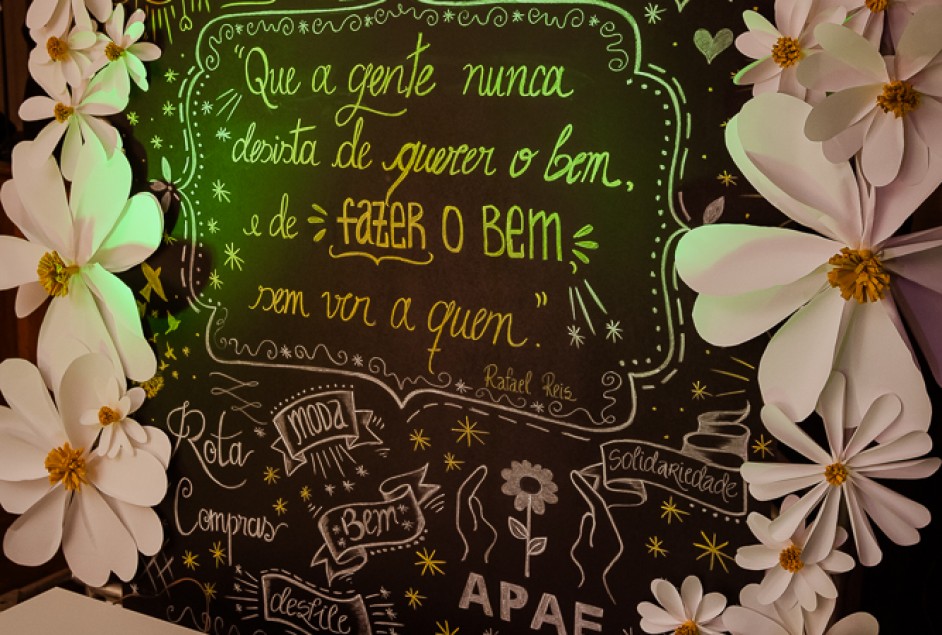 "Que a gente nunca
desista de querer o bem,
e de fazer o bem
sem ver a quem."
Rafael Reis
Rota
moda
Solidariedade
Compras
Bem
desfile
APAE